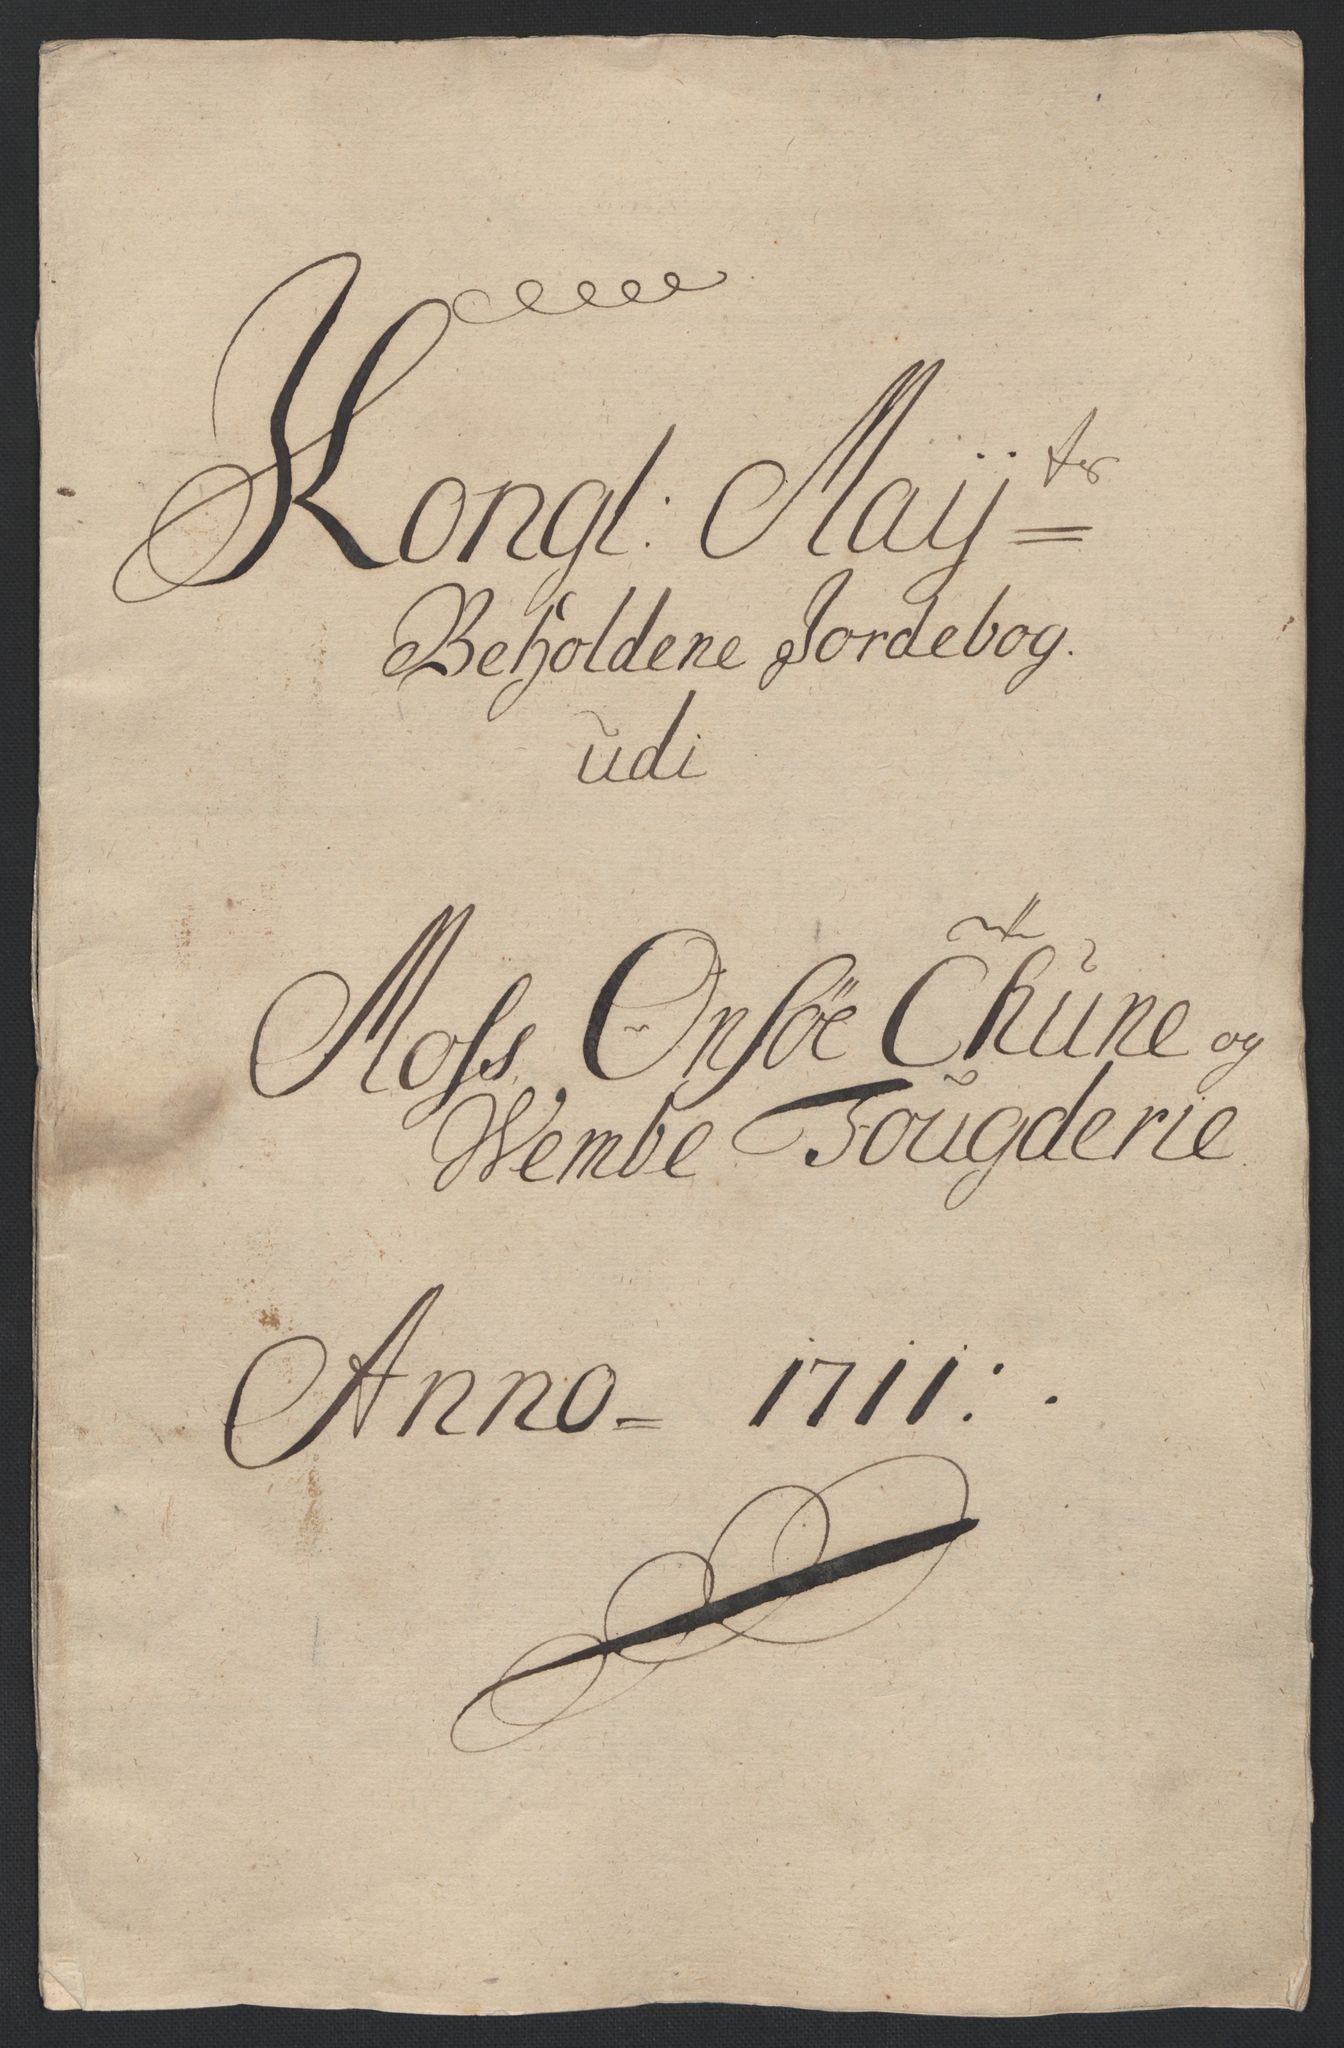 Kongl: Maij.ts
Beholdene Jordebog.
udi
Moss Onsöe Thune og
Wembe Fougderie
Anno = 1711:.